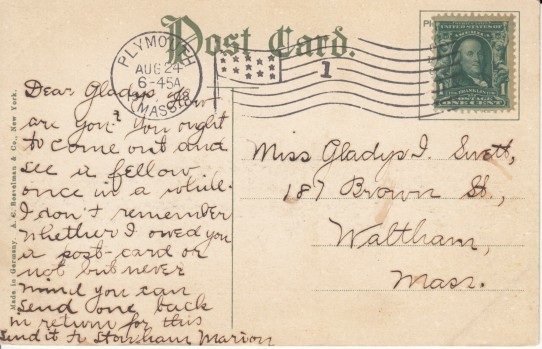 Post Card.
PLYMOUTH
AUG 24
6-45A
MASS.
1
UNITED STATES OF AMERICA
POSTAGE
ONE CENT
Dear Gladys How
are you? You ought
to come out and
see a fellow
once in a while.
I don't remember
whether I owed you
a post-card or
not but never
mind you can
send one back
in return for this
send it to Stoneham Marion
Miss Gladys I. Swett,
187 Brown St.,
Waltham,
Mass.
Made in Germany. A. C. Bosselman & Co., New York.